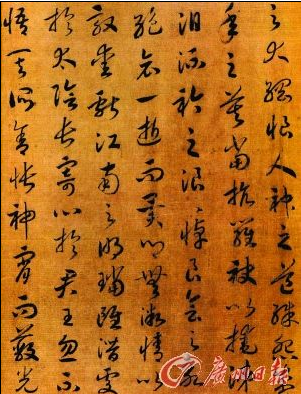 之大綱恨人神之道殊怨盛
年之莫當抗羅袂以掩涕
泪流衿之浪浪悼良會之永
絕哀一逝而異鄉無微情以
效愛獻江南之明璫雖潛處
於太陰長寄心於君王忽不
悟其所舍悵神宵而蔽光
廣州日报